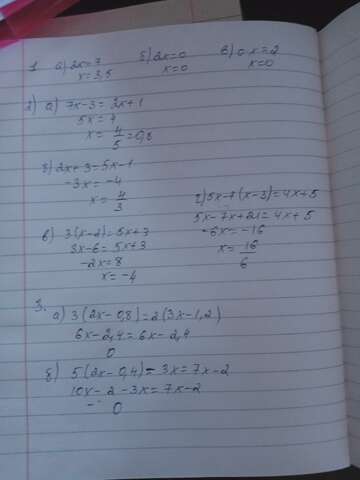 1. а) 2x=7 б) 2x=0 в) 0·x=2
x=3,5 x=0 x=0
2) а) 7x-3=2x+1
5x=4
x=4/5=0,8
б) 2x+3=5x-1
-3x=-4
x=4/3
в) 3(x-2)=5x+3
3x-6=5x+3
-2x=8
x=-4
г) 5x-7(x-3)=4x+5
5x-7x+21=4x+5
-6x=-16
x=16/6
3.
а) 3(2x-0,8)=2(3x-1,2)
6x-2,4=6x-2,4
0
б) 5(2x-0,4)-3x=7x-2
10x-2-3x=7x-2
0